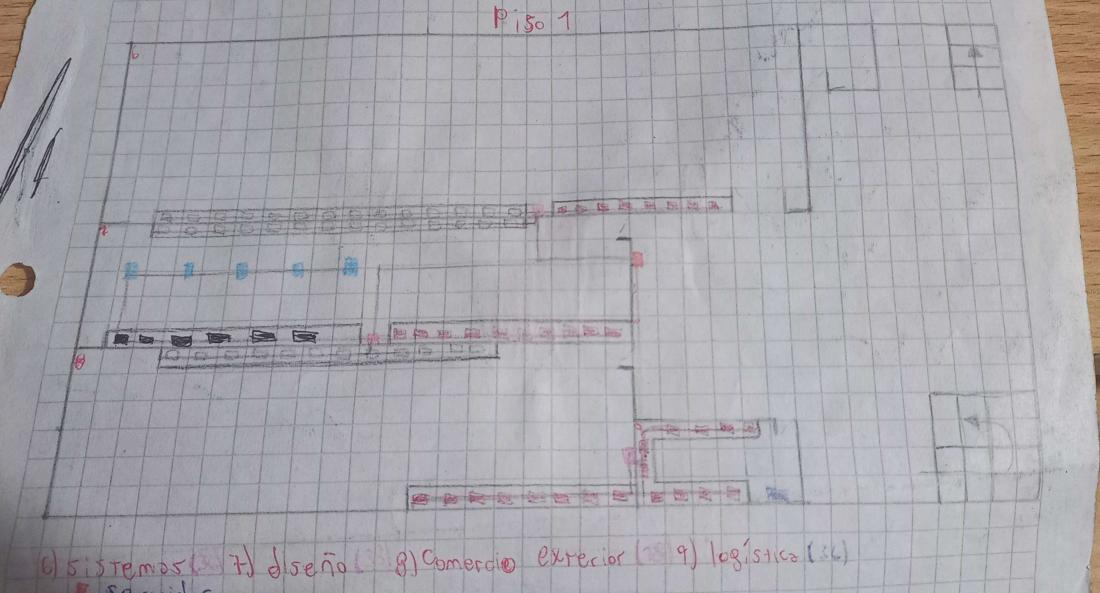 Piso 1
6
7
8
6) sistemas 7) diseño 8) Comercio exrerior 9) logística (36)